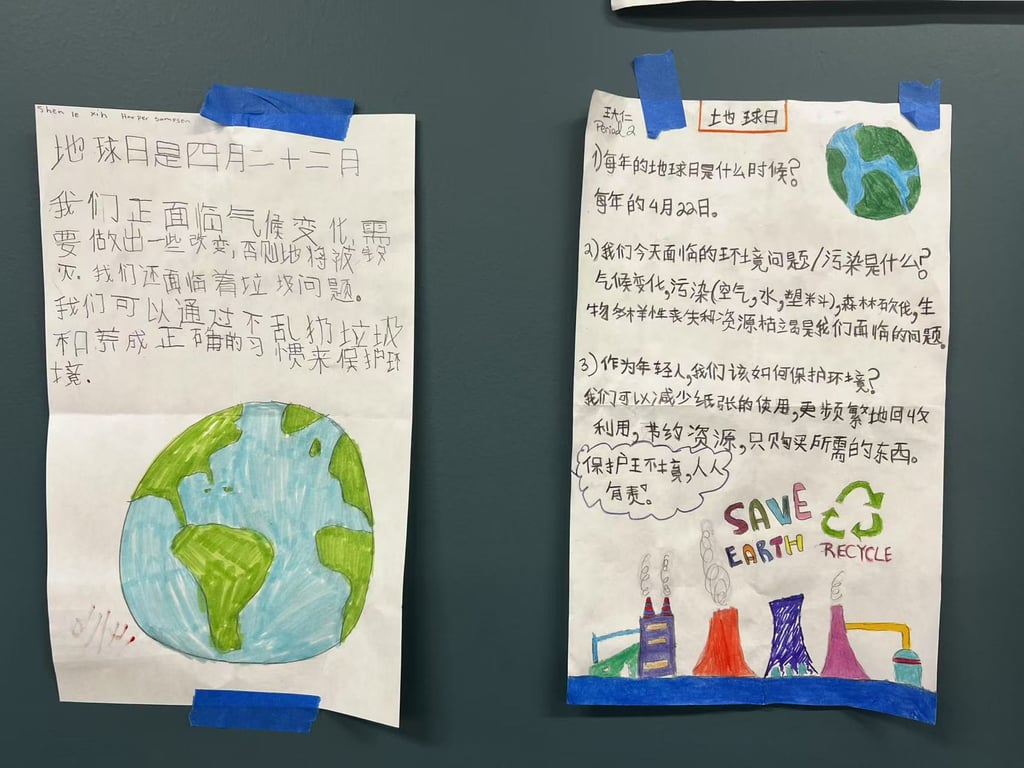 Shen le xin Harper Sampson
地球日是四月二十二月
我们正面临气候变化,需
要做出一些改变,否则地将被毁
灭.我们还面临着垃圾问题。
我们可以通过不乱扔垃圾
和养成正确的习惯来保护环
境.
Period 2
地球日
1)每年的地球日是什么时候?
每年的4月22日。
2)我们今天面临的环境问题/污染是什么?
气候变化,污染(空气,水,塑料),森林砍伐,生
物多样性丧失和资源枯竭是我们面临的问题。
3)作为年轻人,我们该如何保护环境?
我们可以减少纸张的使用,更频繁地回收
利用,节约资源,只购买所需的东西。
保护环境,人人
有责。
SAVE
EARTH
RECYCLE